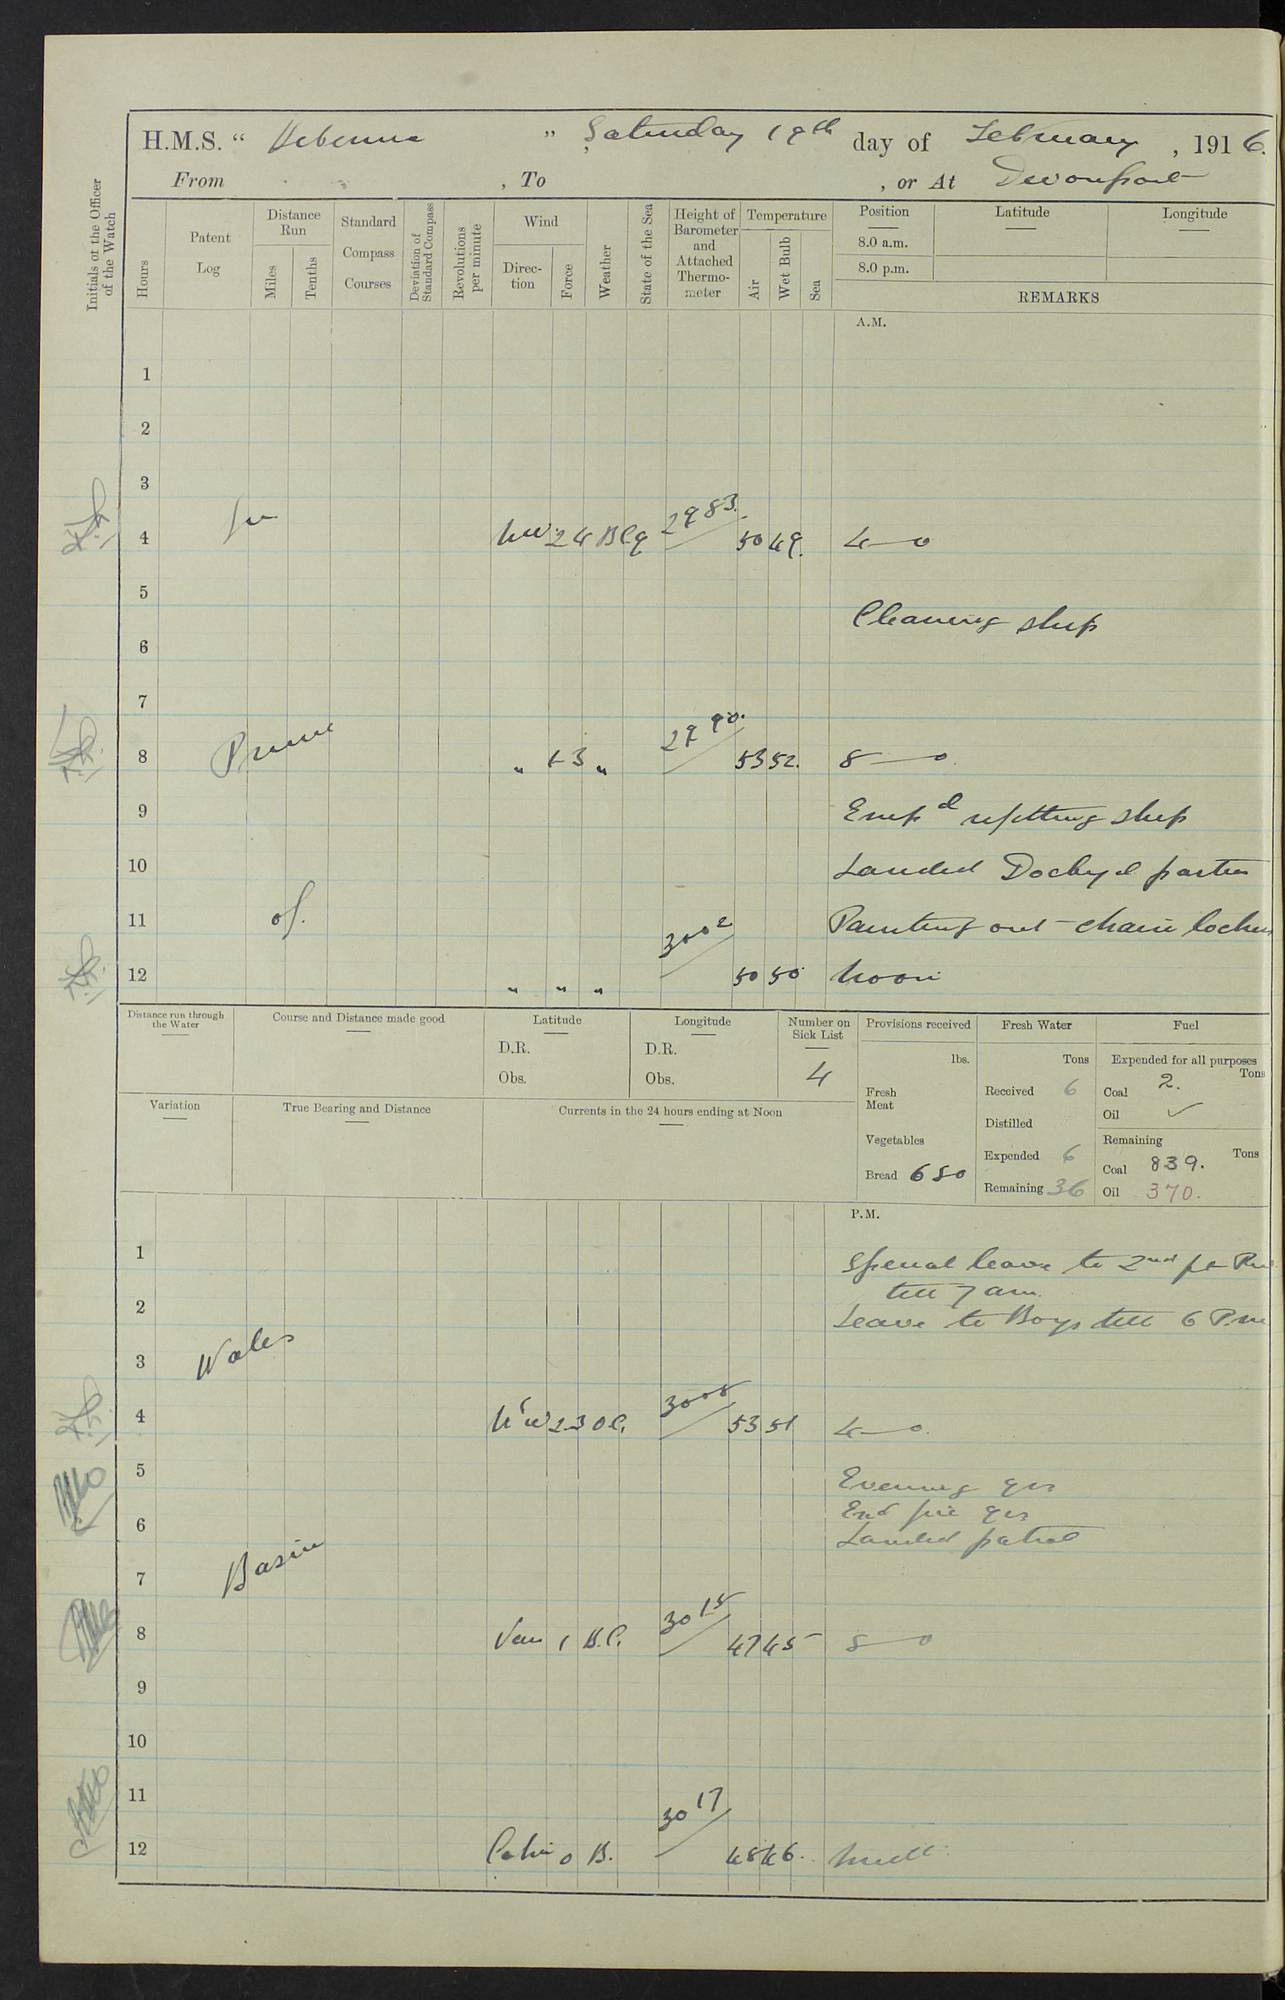 H.M.S. “ Hibernia ” Saturday 19th day of February, 1916.
From , To , or At Devonport
Initials of the Officer of the Watch
Hours
Patent Log
Distance Run
Miles
Tenths
Standard Compass Courses
Deviation of Standard Compass
Revolutions per minute
Wind
Direction
Force
Weather
State of the Sea
Height of Barometer and Attached Thermometer
Temperature
Air
Wet Bulb
Sea
Position
8.0 a.m.
8.0 p.m.
Latitude
Longitude
REMARKS
A.M.
1
2
3
4 In NW 2 4 BCq 2983 50 49. 4—0
5
Cleaning ship
6
7
8 Prince „ 1-3 „ 2990. 53 52. 8—0.
9 Emp d refitting ship
10 Landed Dockyd parties
11 of.
Painting out chain locker
12 „ „ „ 3002 50 50 Noon
Distance run through the Water
Course and Distance made good
Latitude
D.R.
Obs.
Longitude
D.R.
Obs.
Number on Sick List
4
Provisions received
lbs.
Fresh Meat
Vegetables
Bread 650
Fresh Water
Tons
Received 6
Distilled
Expended 6
Remaining 36
Fuel
Expended for all purposes
Tons
Coal 2.
Oil ✓
Remaining
Tons
Coal 839.
Oil 370.
Variation
True Bearing and Distance
Currents in the 24 hours ending at Noon
P.M.
1 Special leave to 2nd pt
till 7 am.
2 Leave to Boys till 6 P.m
3 Wales
4 N'W 2-3 OC. 3008 53 51 4—0.
5 Evening qrs
Exd fire qrs
6 Landed patrol
7 Basin
8 Var 1 B.C. 3015 47 45 8—0
9
10
11
12 Calm 0 B. 3017 48 46. Midt.